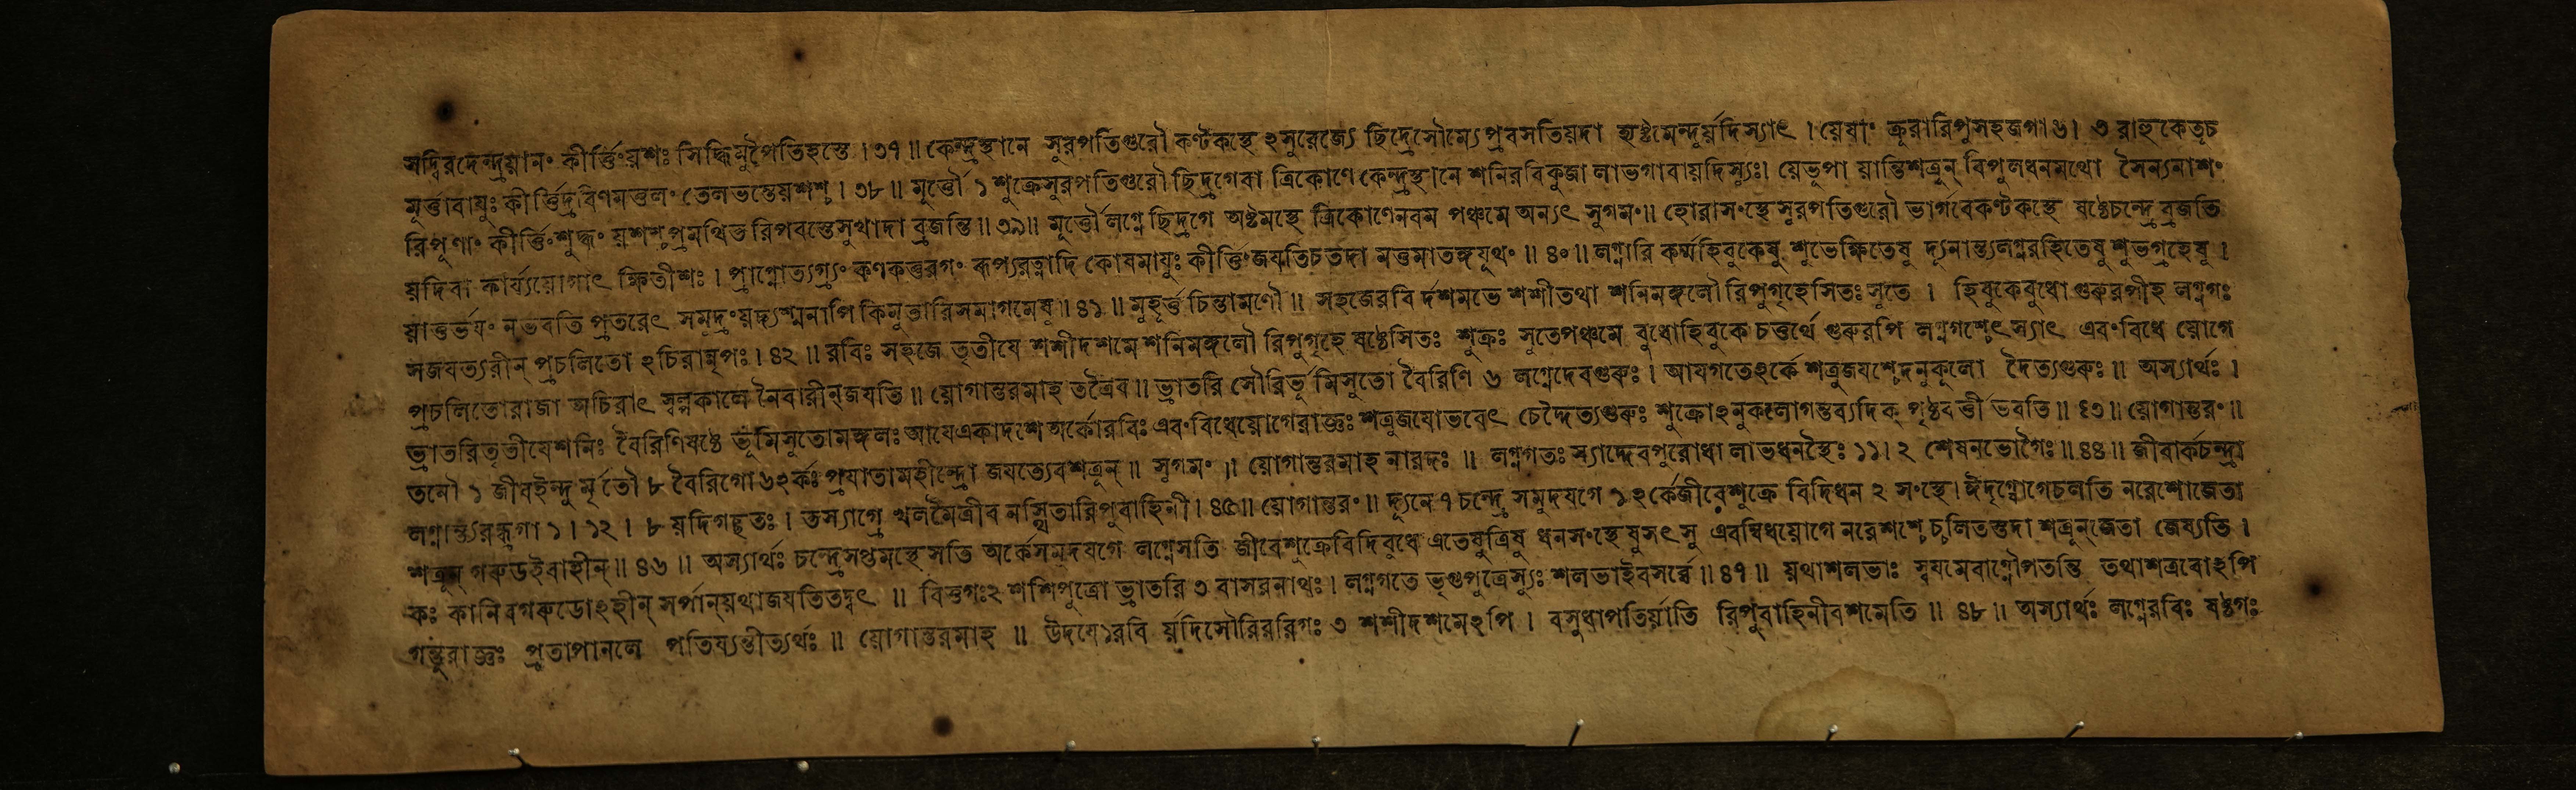 সদ্বিরদেন্দ্রয়ানং কীর্ত্তিংয়শঃ সিদ্ধিমুপৈতিহস্তে। ৩৭॥ কেন্দ্রস্থানে সুরপতিগুরৌ কণ্টকস্থে ঽসুরেজ্যে ছিদ্রেসৌম্যে প্রবসতিয়দা হ্যষ্টমেন্দুর্য়দিস্যাৎ। য়েষাং ক্রূরারিপুসহজগা ৬। ৩ রাহুকেতূচ
মূর্ত্তাবায়ুঃ কীর্ত্তির্দ্রবিণমতুলং তেলভন্তেয়শশ্চ। ৩৮॥ মূর্ত্তৌ ১ শুক্রেসুরপতিগুরৌ ছিদ্রগেবা ত্রিকোণে কেন্দ্রস্থানে শনিরবিকুজা লাভগাবায়দিস্যুঃ। য়েভূপা য়ান্তিশত্রূন্ বিপুলধনমথো সৈন্যনাশং
রিপূণাং কীর্ত্তিংশুদ্ধং য়শশ্চপ্রমথিত রিপবস্তেসুখাদা ব্রজন্তি॥ ৩৯॥ মূর্ত্তৌলগ্নে ছিদ্রগে অষ্টমস্থে ত্রিকোণেনবম পঞ্চমে অন্যৎ সুগমং॥ হোরাসংস্থেসুরপতিগুরৌ ভার্গবেকণ্টকস্থে ষষ্ঠেচন্দ্রে ব্রজতি
য়দিবা কার্য্যয়োগাৎ ক্ষিতীশঃ। প্রাপ্নোত্যগ্র্যং কণকতুরগং রূপ্যরত্নাদি কোষমায়ুঃ কীর্ত্তিংজয়তিচতদা মত্তমাতঙ্গয়ূথং॥ ৪০॥ লগ্নারি কর্ম্মহিবুকেষু শুভেক্ষিতেষু দ্যূনান্ত্যলগ্নরহিতেষু শুভগ্রহেষু।
য়াতুর্ভয়ং নভবতি প্রতরেৎ সমুদ্রংয়দ্যশ্মনাপি কিমুতারিসমাগমেষু॥ ৪১॥ মুহূর্ত্তচিন্তামণৌ॥ সহজেরবি র্দশমভে শশীতথা শনিমঙ্গলৌ রিপুগৃহেসিতঃ সুতে। হিবুকেবুধো গুরুরপীহ লগ্নগঃ
সজয়ত্যরীন্ প্রচলিতো ঽচিরান্নৃপঃ। ৪২॥ রবিঃ সহজে তৃতীয়ে শশীদশমে শনিমঙ্গলৌ রিপুগৃহে ষষ্ঠেসিতঃ শুক্রঃ সুতেপঞ্চমে বুধোহিবুকে চতুর্থে গুরুরপি লগ্নগশ্চেৎস্যাৎ এবংবিধে য়োগে
প্রচলিতোরাজা অচিরাৎ স্বল্পকালে নৈবারীন্জয়তি॥ য়োগান্তরমাহ তত্রৈব॥ ভ্রাতরি সৌরির্ভূমিসুতো বৈরিণি ৬ লগ্নেদেবগুরুঃ। আয়গতেঽর্কে শত্রুজয়শ্চেদনুকূলো দৈত্যগুরুঃ॥ অস্যার্থঃ।
ভ্রাতরিতৃতীয়েশনিঃ বৈরিণিষষ্ঠে ভূমিসুতোমঙ্গলঃ আয়েএকাদশে অর্কোরবিঃ এবংবিধেয়োগেরাজ্ঞঃ শত্রুজয়োভবেৎ চেদ্দৈত্যগুরুঃ শুক্রোঽনুকলোগন্তব্যদিক্ পৃষ্ঠবর্ত্তী ভবতি॥ ৪৩॥ য়োগান্তরং॥
তনৌ ১ জীবইন্দু র্মৃতৌ ৮ বৈরিগো ৬ঽর্কঃ প্রয়াতামহীন্দ্রো জয়ত্যেবশত্রূন্॥ সুগমং॥ য়োগান্তরমাহ নারদঃ॥ লগ্নগতঃ স্যাদ্দেবপুরোধা লাভধনস্থৈঃ ১১। ২ শেষনভোগৈঃ॥ ৪৪॥ জীবার্কচন্দ্রা
লগ্নান্ত্যরন্ধ্রগা ১। ১২। ৮ য়দিগচ্ছতঃ। তস্যাগ্রে খলমৈত্রীব নস্থিতারিপুবাহিনী। ৪৫॥ য়োগান্তরং॥ দ্যূনে ৭ চন্দ্রে সমুদয়গে ১ঽর্কেজীবেশুক্রে বিদিধন ২ সংস্থে। ঈদৃগ্যোগেচলতি নরেশোজেতা
শত্রূন্ গরুডইবাহীন্॥ ৪৬॥ অস্যার্থঃ চন্দ্রেসপ্তমস্থেসতি অর্কেসমুদয়গে লগ্নেসতি জীবেশুক্রেবিদিবুধে এতেষুত্রিষু ধনসংস্থেষুসৎসু এবম্বিধয়োগে নরেশশ্চেচ্চলিতস্তদা শত্রূন্জেতা জেষ্যতি।
কঃ কানিবগরুডোঽহীন্ সর্পান্য়থাজয়তিতদ্বৎ॥ বিত্তগঃ২ শশিপুত্রো ভ্রাতরি ৩ বাসরনাথঃ। লগ্নগতে ভৃগুপুত্রেস্যুঃ শলভাইবসর্ব্বে॥ ৪৭॥ য়থাশলভাঃ স্বয়মেবাগ্নৌপতন্তি তথাশত্রবোঽপি
গন্তুরাজ্ঞঃ প্রতাপানলে পতিষ্যন্তীত্যর্থঃ॥ য়োগান্তরমাহ॥ উদয়ে১রবি র্য়দিসৌরিররিগঃ ৩ শশীদশমেঽপি। বসুধাপতির্য়াতি রিপুবাহিনীবশমেতি॥ ৪৮॥ অস্যার্থঃ লগ্নেরবিঃ ষষ্ঠগঃ